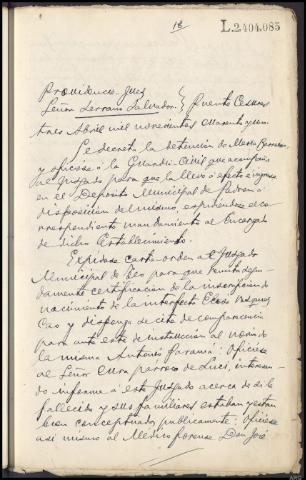 18
L.2404,085
Providencia-Juez
Señor Serrano Salvador. } Puente Cesures
tres Abril mil novecientos cuarenta y uno.
Se decreta la detención de María
y ofíciese á la Guardia Civil que acompaña
al Juzgado para que la lleve á efecto é ingrese
en el Depósito Municipal de Padrón á
disposición del mismo, expidiéndose el co-
rrespondiente mandamiento al Encargado
de dicho establecimiento.
Expídase carta-orden al Juzgado
Municipal de Teo para que remita
certificación de la inscripción de
nacimiento de la interfecta
Cao y disponga se cite de comparecencia
para ante este de instrucción al novio de
la misma Antonio ; Ofíciese
al Señor Cura párroco de Luci, interesan-
do informe á este Juzgado acerca de si la
fallecida y sus familiares estaban y están
bien conceptuados públicamente; Ofíciese
así mismo al Médico forense Don José